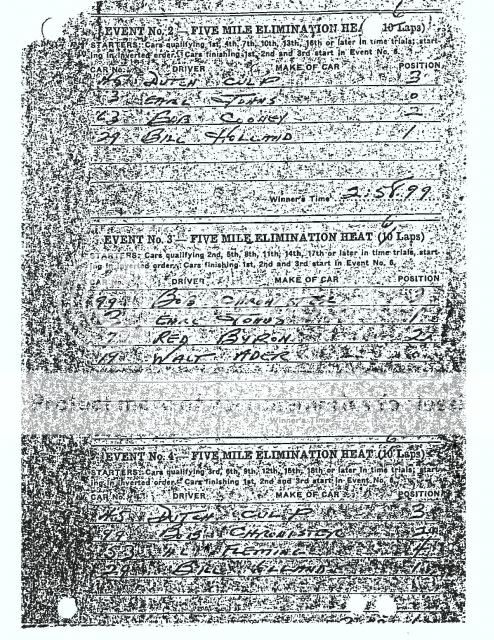 6
EVENT No. 2 — FIVE MILE ELIMINATION HEA 10 Laps)
STARTERS: Cars qualifying 1st, 4th, 7th, 10th, 13th, 16th or later in time trials, start-
ing in inverted order. Cars finishing 1st, 2nd and 3rd start in Event No. 6.
CAR No. DRIVER MAKE OF CAR POSITION
45 DUTCH CULP 3
3 EARL JOHNS 0
63 BOB CLONEY 2
29 BILL HOLLAND 1
Winner's Time 2:58.99
6
EVENT No. 3 — FIVE MILE ELIMINATION HEAT (10 Laps)
STARTERS: Cars qualifying 2nd, 5th, 8th, 11th, 14th, 17th or later in time trials, start-
ing in inverted order. Cars finishing 1st, 2nd and 3rd start in Event No. 6.
DRIVER MAKE OF CAR POSITION
99 BOB
3 EARL JOHNS 1
7 RED BYRON 2
19 WALT ADER
6
EVENT No. 4 — FIVE MILE ELIMINATION HEAT (10 Laps)
STARTERS: Cars qualifying 3rd, 6th, 9th, 12th, 15th, 18th or later in time trials, start-
ing in inverted order. Cars finishing 1st, 2nd and 3rd start in Event No. 6.
CAR No. DRIVER MAKE OF CAR POSITION
45 DUTCH CULP 3
99 BOB CHRONISTER 2
53 AL FLEMING 4
29 BILL HOLLAND 1